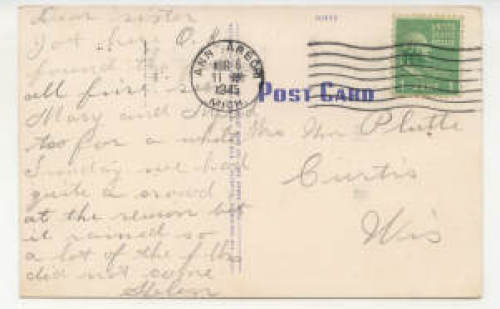 Dear sister
Got here O.K.
found the
all fine
Mary and
too for a while
Sunday we had
quite a crowd
at the reunion but
it rained so
a lot of the
did not come
Helen
ANN ARBOR
11
1945
MICH.
POST CARD
Mrs Wm Platte
Curtis
Wis